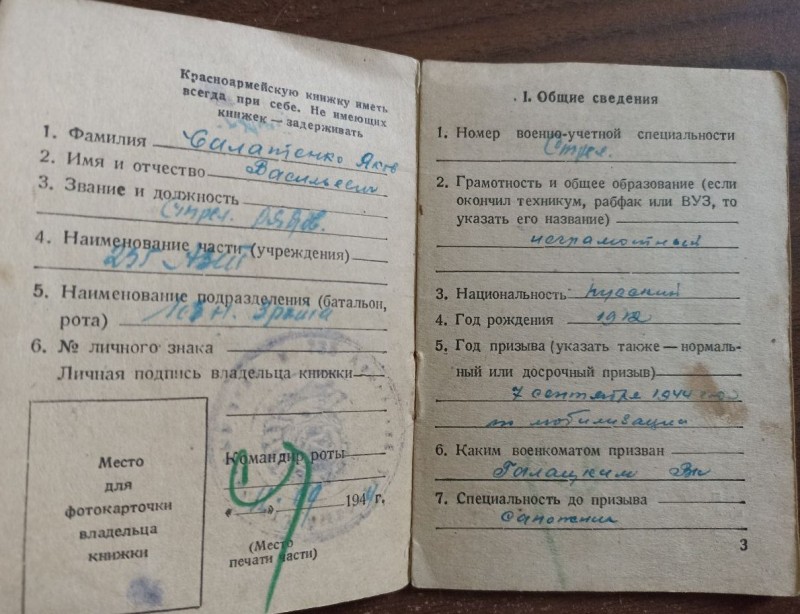 Красноармейскую книжку иметь
всегда при себе. Не имеющих
книжек — задерживать
1. Фамилия Салатенко Яков
2. Имя и отчество Васильевич
3. Звание и должность
Стрел. рядов.
4. Наименование части (учреждения)
235
5. Наименование подразделения (батальон,
рота)
6. № личного знака
Личная подпись владельца книжки
Командир роты
„ “ 1944 г.
(Место
печати части)
Место
для
фотокарточки
владельца
книжки
I. Общие сведения
1. Номер военно-учетной специальности
Стрел.
2. Грамотность и общее образование (если
окончил техникум, рабфак или ВУЗ, то
указать его название)
неграмотный
3. Национальность русский
4. Год рождения 1912
5. Год призыва (указать также — нормаль-
ный или досрочный призыв)
7 сентября 1944 год
мобилизации
6. Каким военкоматом призван
Галацким
7. Специальность до призыва
Сапожник
3